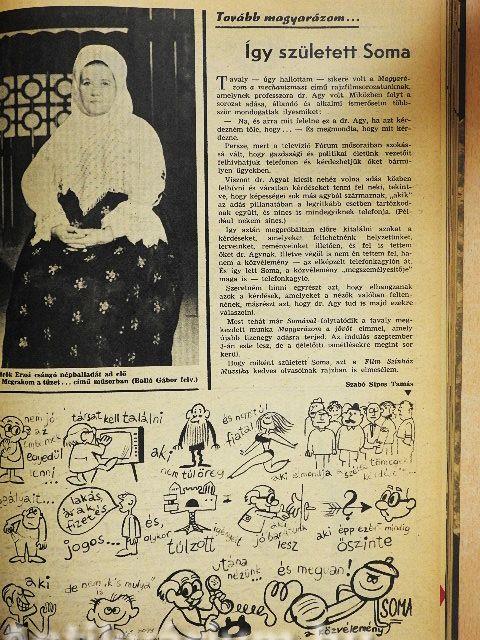 Tovább magyarázom...
Így született Soma
Tavaly — úgy hallottam — sikere volt a Magyará-
zom a mechanizmust című rajzfilmsorozatunknak,
amelynek professzora dr. Agy volt. Miközben folyt a
sorozat adása, állandó és alkalmi ismerőseim több-
ször mondogattak ilyesmiket:
— Na, és arra mit felelne ez a dr. Agy, ha azt kér-
dezném tőle, hogy... — És megmondta, hogy mit kér-
dezne.
Persze, mert a televízió Fórum műsoraiban szokás-
sá vált, hogy gazdasági és politikai életünk vezetőit
felhívhatjuk telefonon és kérdezhetjük őket bármi-
lyen ügyekben.
Viszont dr. Agyat kicsit nehéz volna adás közben
felhívni és váratlan kérdéseket tenni fel neki, tekint-
ve, hogy képességei sok más agyból származnak, „akik"
az adás pillanatában a legritkább esetben tartózkod-
nak együtt, és nincs is mindegyiknek telefonja. (Pél-
dául nekem sincs.)
Így aztán megpróbáltam előre kitalálni azokat a
kérdéseket, amelyeket feltehetnénk helyzetünket,
terveinket, reményeinket illetően, és fel is tettem
őket dr. Agynak. Illetve végül is nem én tettem fel, ha-
nem a közvélemény — az elképzelt telefonkagylón át.
És így lett Soma, a közvélemény „megszemélyesítője"
maga is — telefonkagyló.
Szeretném hinni egyrészt azt, hogy elhangzanak
azok a kérdések, amelyeket a nézők valóban felten-
nének, másrészt azt, hogy dr. Agy tud is majd ezekre
válaszolni.
Most tehát már Somával folytatódik a tavaly meg-
kezdett munka Magyarázom a jövőt címmel, amely
újabb tizenegy adásra terjed. Az indulás szeptember
3-án este lesz, de a délelőtti ismétlésekre megint sor
kerül.
Hogy miként született Soma, azt a Film Színház
Muzsika kedves olvasóinak rajzban is elmesélem.
Szabó Sipos Tamás
Erzsi csángó népballadát ad elő
Megrakom a tüzet... című műsorban (Balló Gábor felv.)
nem jó
az
embernek
egyedül
lenni
társat kell találni
aki
nem túl öreg
és nem túl
fiatal
aki elmondja a
lakás,
árak és
fizetés
jogos...
és,
olykor
túlzott
aki
jó barátunk
lesz
aki épp ezért mindig
őszinte
aki
de nem „k's mulya" is
utána
nézünk...
és megvan!
SOMA
(a közvélemény)